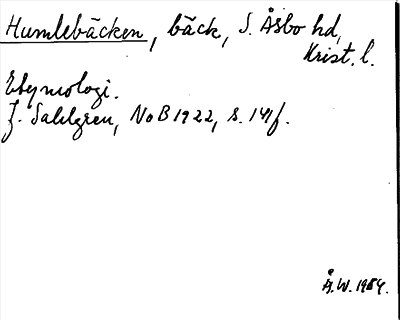 Humlebäcken, bäck, S. Åsbo hd,
Krist. l.
Etymologi.
J. Sahlgren, NoB 1922, s. 141f.
Å.W. 1984.